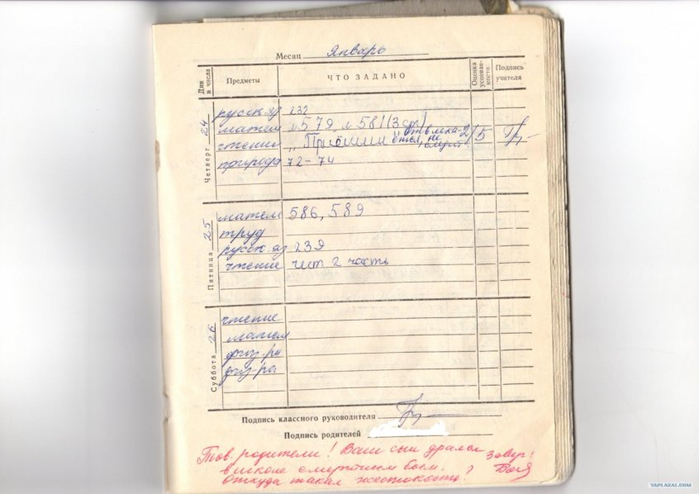 Месяц Январь
Дни и числа Предметы ЧТО ЗАДАНО Оценка успеваемости Подпись учителя
Четверг 24
русск яз 232
матем № 579, № 581 (3 ст)
чтение „Приёмыш" 2/5
природа 72-74
Пятница 25
матем 586, 589
труд
русск яз 239
чтение чит 2 часть
Суббота 26
чтение
матем
физ-ра
физ-ра
Подпись классного руководителя
Подпись родителей
Тов. родители! Ваш сын дрался
в школе смертным боем.
Откуда такая жестокость?
YAPLAKAL.COM